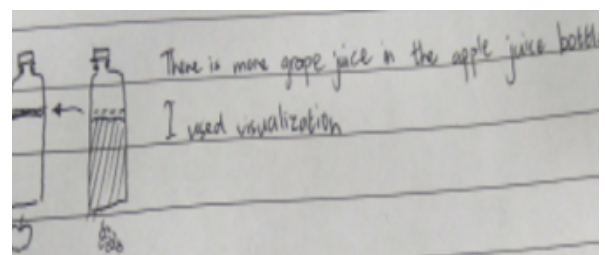 There is more grape juice in the apple juice bottle
I used visualization